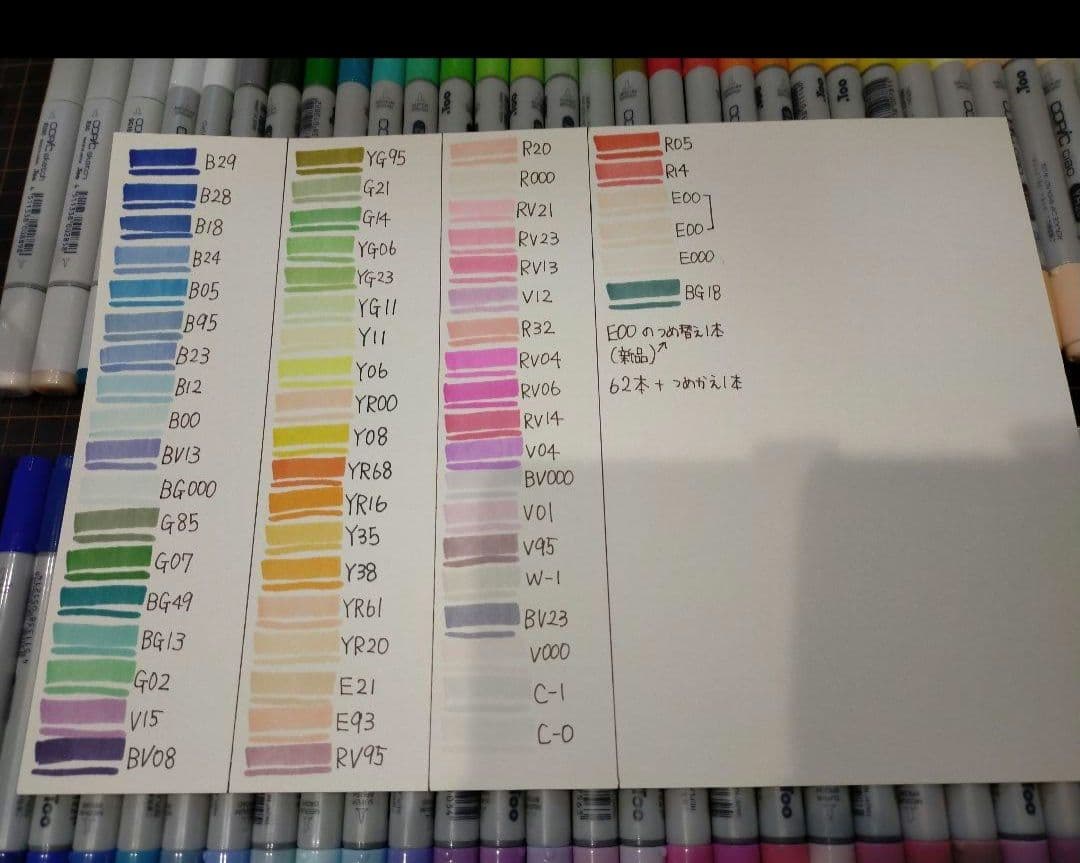 B29
B28
B18
B24
B05
B95
B23
B12
B00
BV13
BG000
G85
G07
BG49
BG13
G02
V15
BV08
YG95
G21
G14
YG06
YG23
YG11
Y11
Y06
YR00
Y08
YR68
YR16
Y35
Y38
YR61
YR20
E21
E93
RV95
R20
R000
RV21
RV23
RV13
V12
R32
RV04
RV06
RV14
V04
BV000
V01
V95
W-1
BV23
V000
C-1
C-0
R05
R14
E00
E00
E000
BG18
E00のつめ替え1本
(新品)↗
62本+つめかえ1本